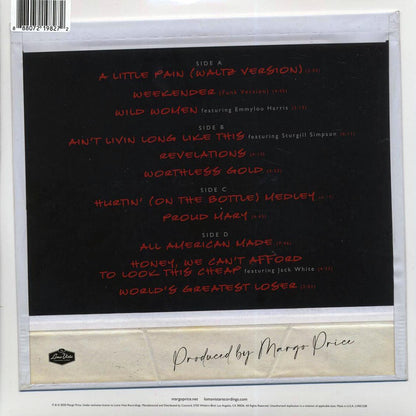 8 88072 19827 2
SIDE A
A LITTLE PAIN (WALTZ VERSION)
WEEKENDER (Funk Version)
WILD WOMEN featuring Emmylou Harris
SIDE B
AIN'T LIVIN LONG LIKE THIS featuring Sturgill Simpson
REVELATIONS
WORTHLESS GOLD
SIDE C
HURTIN' (ON THE BOTTLE) MEDLEY
PROUD MARY
SIDE D
ALL AMERICAN MADE
HONEY, WE CAN'T AFFORD
TO LOOK THIS CHEAP featuring Jack White
WORLD'S GREATEST LOSER
Loma Vista
Produced by Margo Price
margoprice.net lomavistarecordings.com